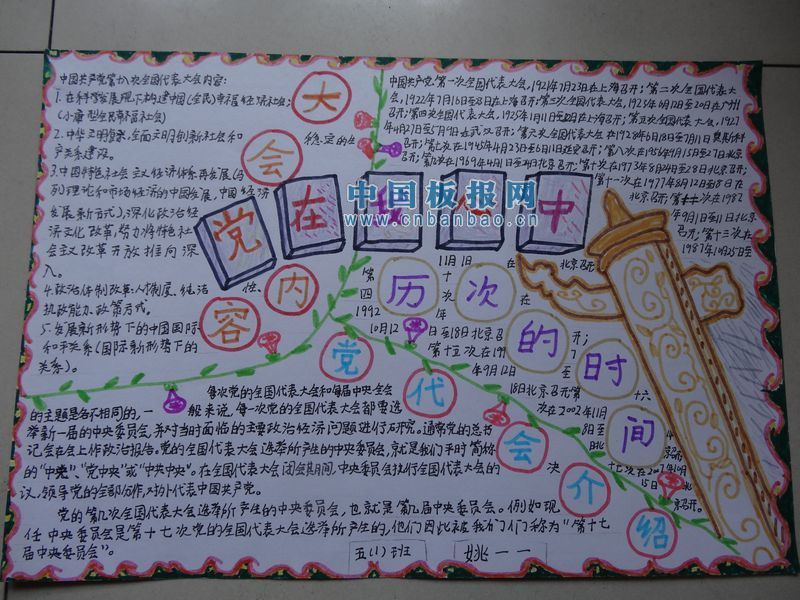 中国共产党第十八次全国代表大会内容：
1. 在科学发展观下构建中国(全民)幸福经济社会；
(小康型全民幸福社会)
稳定的
2. 中华文明复象，全面文明创新社会和
户关系建设。
3. 中国特色社会主义经济体系再发展，(马
列)理论和市场经济的中国发展，中国经济
发展新方式)，深化政治经
济文化改革，努力将特色社
会主义改革开放推向深
入。
4. 政治体制改革：人制屡、纯洁性、
执政能力、政策方式。
5. 发展新形势下的中国国际
和平关系(国际新形势下的
关系)。
大会
内容
党在我心中
中国板报网
www.cnbanbao.cn
中国共产党第一次全国代表大会，1921年7月23日在上海召开；第二次全国代表大
会，1922年7月16日至23日在上海召开；第三次全国代表大会，1923年6月12日至20日在广州
召开；第四次全国代表大会，1925年1月11日至22日在上海召开；第五次全国代表大会，1927
年4月27日至5月9日在武汉召开；第六次全国代表大会在1928年6月18日至7月11日莫斯科
召开；第七次在1945年4月23日至6月11日延安召开；第八次在1956年9月15日至27日北京
召开；第九次在1969年4月1日至24日北京召开；第十次在1973年8月24日至28日北京召开；
第十一次在1977年8月12日至18日在
北京召开；第十二次在1982
年9月1日至11日北京
召开；第十三次在
1987年10月25日至
11月1日在北京召开
第十四次在
1992年
10月12日至18日北京召开；
第十五次在1997
年9月12日至
18日北京召开；第十六
次在2002年11月
8日至
北京召开
十七次在2007年10月
15日
北京召开。
历次的时间
党代会介绍
每次党的全国代表大会和每届中央全会
的主题是各不相同的，一般来说，每一次党的全国代表大会都要选
举新一届的中央委员会，并对当时面临的主要政治经济问题进行了研究。通常党的总书
记会在会上作政治报告。党的全国代表大会选举所产生的中央委员会，就是我们平时简称
的“中央”、“党中央”或“中共中央”。在全国代表大会闭会期间，中央委员会执行全国代表大会的决
议，领导党的全部工作，对外代表中国共产党。
党的第几次全国代表大会选举所产生的中央委员会，也就是第几届中央委员会。例如现
任中央委员会是第十七次党的全国代表大会选举所产生的，他们因此被我们人们称为“第十七
届中央委员会”。
五(1)班
姚一一